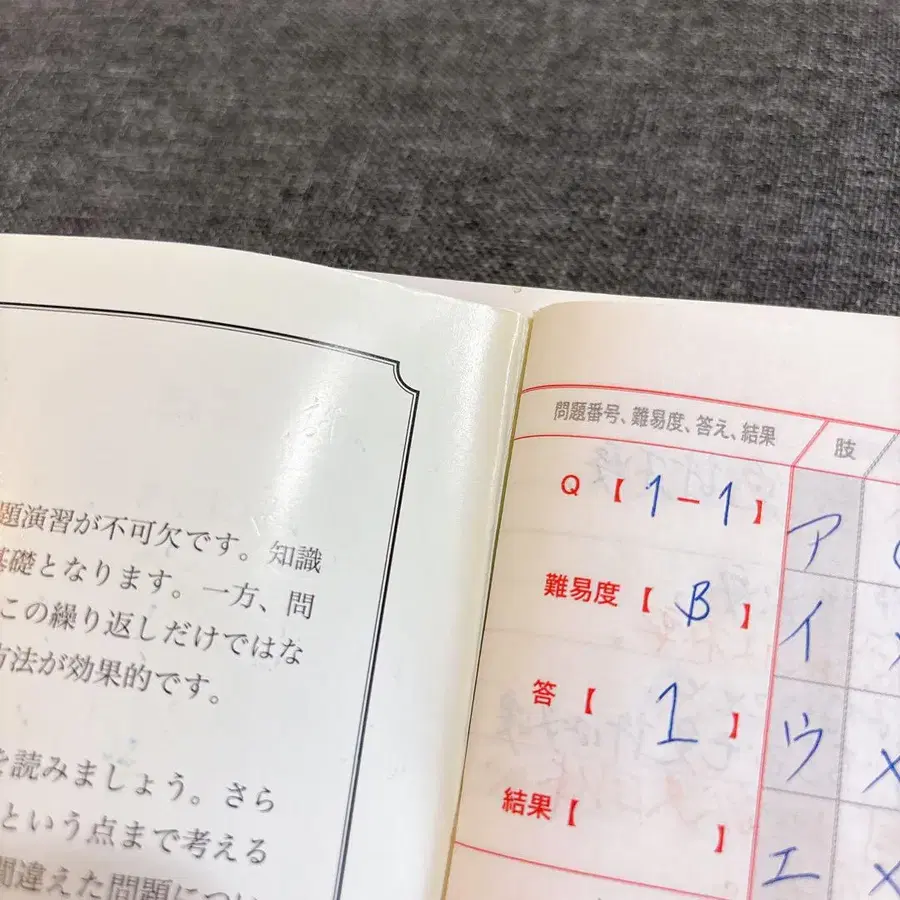 題演習が不可欠です。知識
基礎となります。一方、問
この繰り返しだけではな
方法が効果的です。
を読みましょう。さら
という点まで考える
間違えた問題につい
問題番号、難易度、答え、結果
肢
Q【1-1】
ア
難易度【B】
イ
答【1】
ウ
×
結果【 】
エ
×